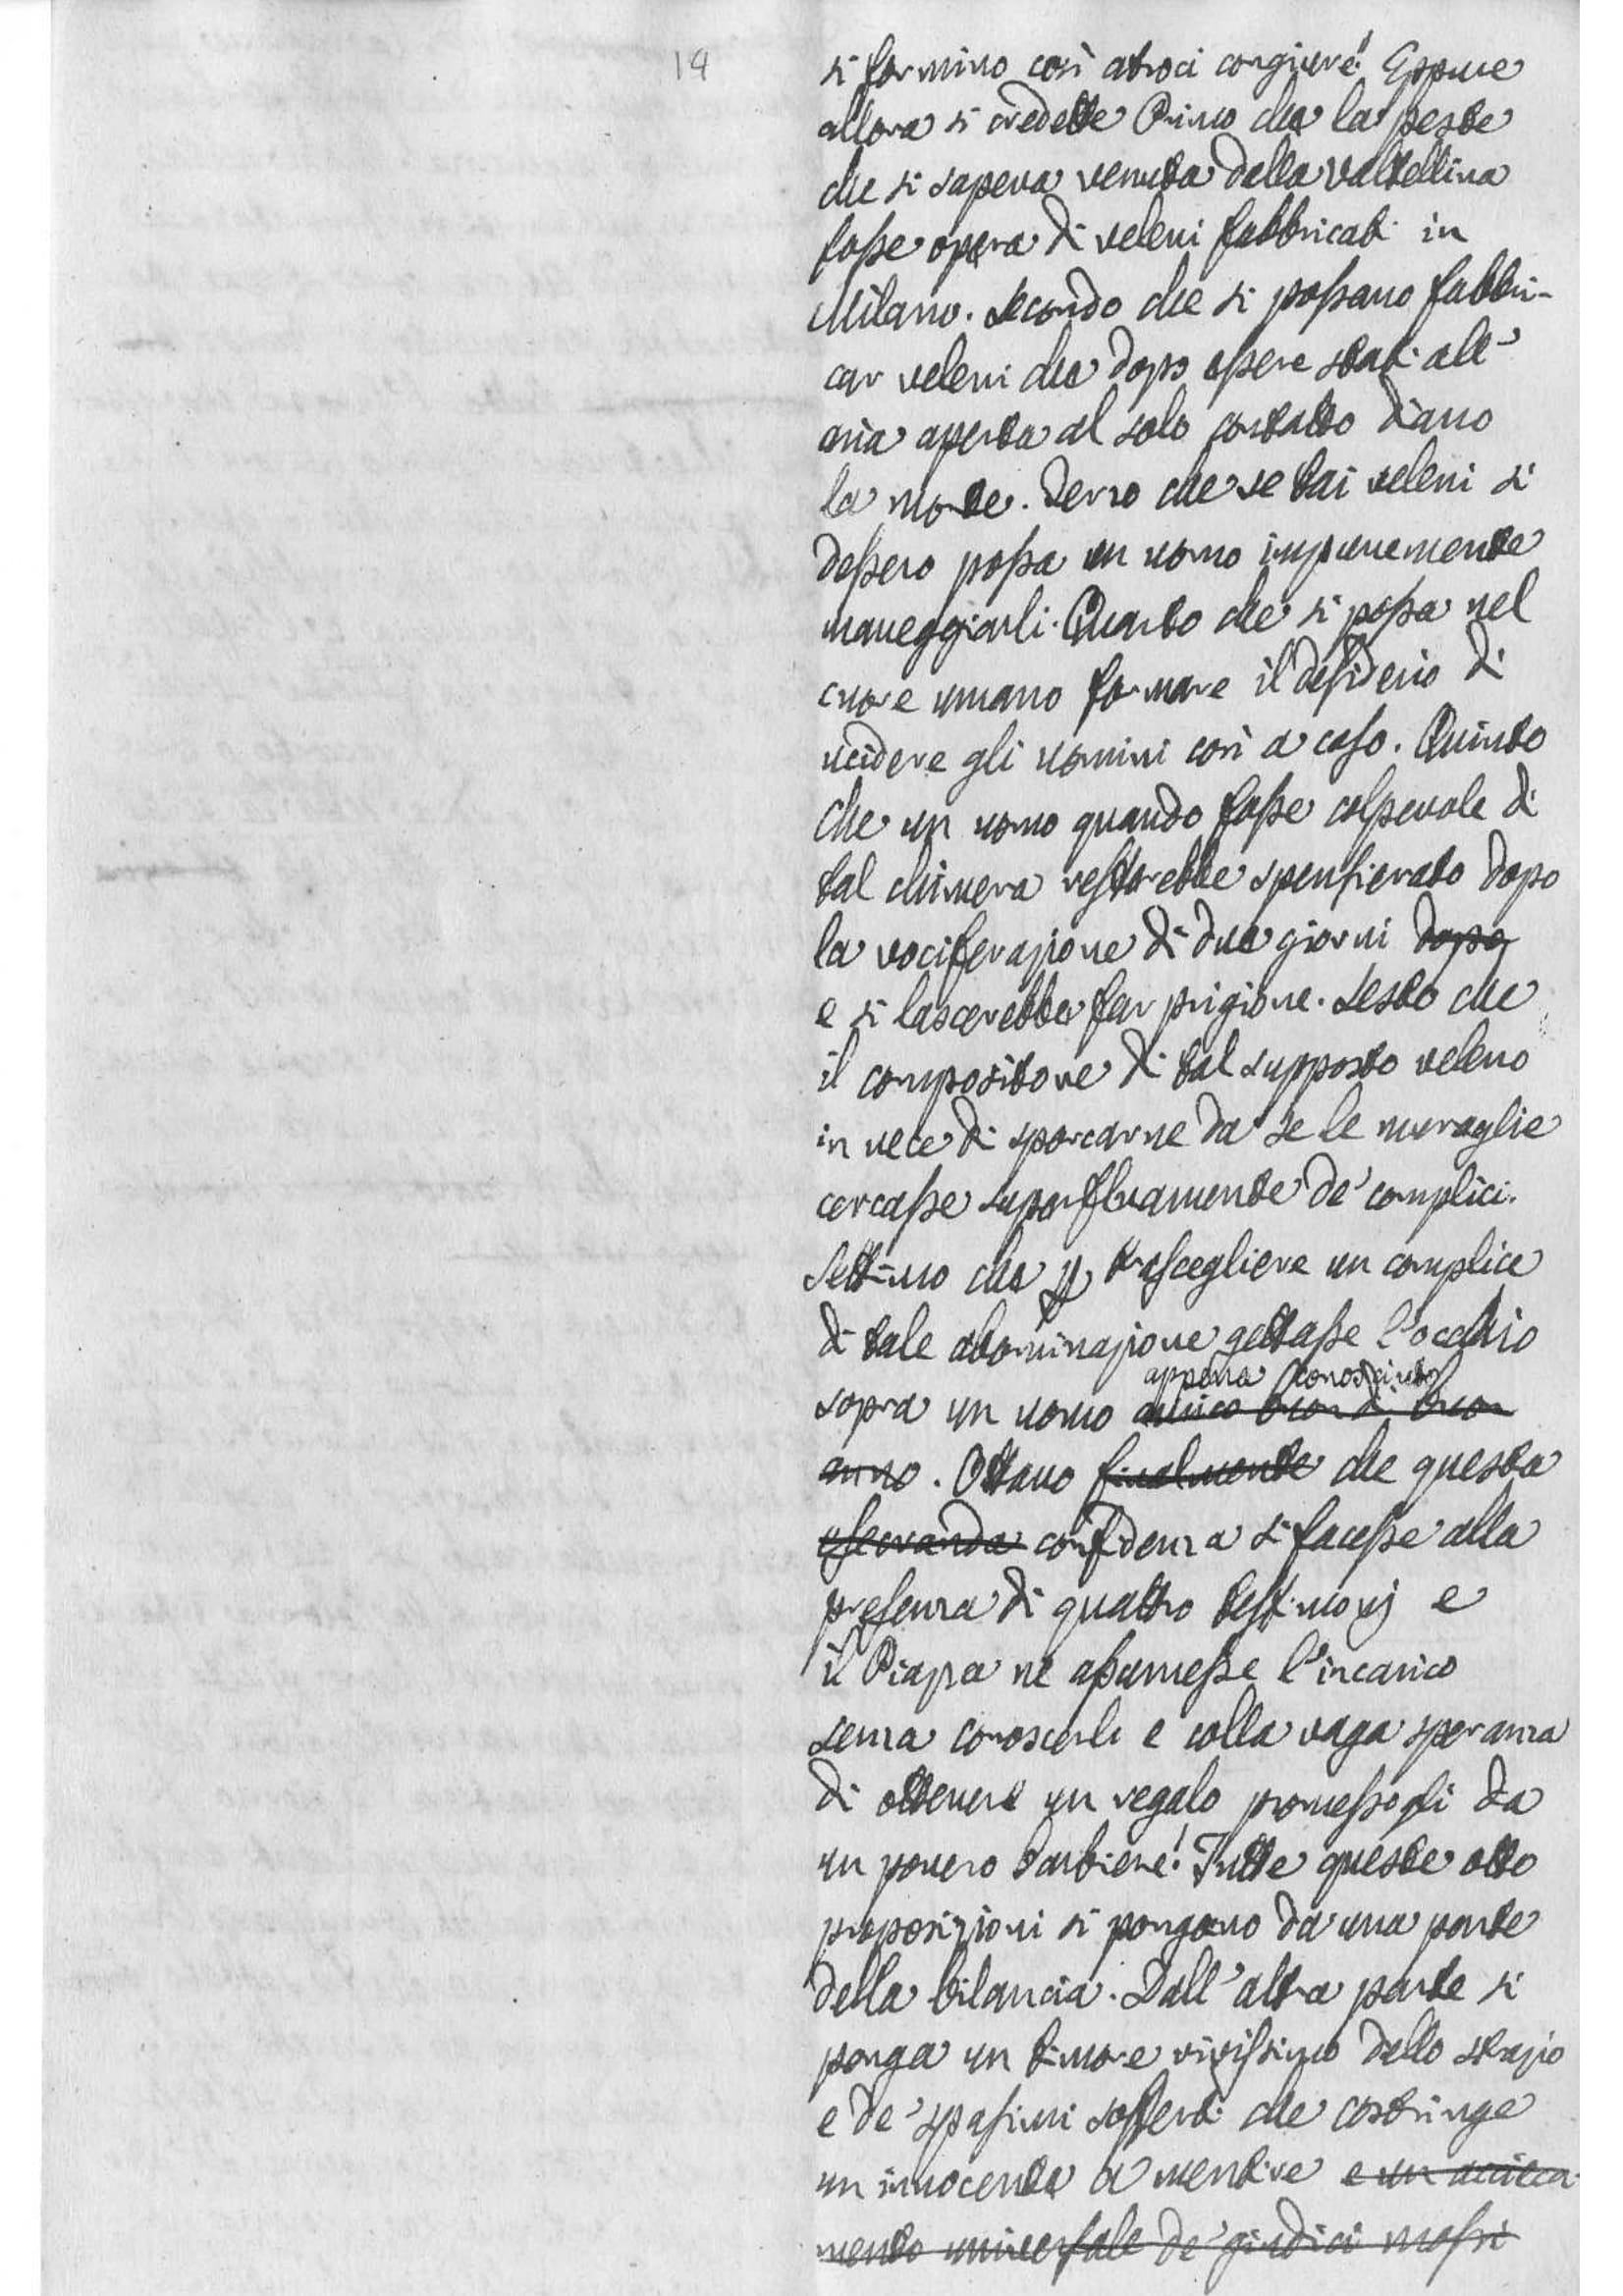 19
si formino così atroci congiure! Eppure
allora si credette Primo che la peste
che si sapeva venuta dalla Valtellina
fosse opera di veleni fabbricati in
Milano. Secondo che si possano fabbri-
car veleni che dopo essere stati all'
aria aperta al solo contatto diano
la morte. Terzo che se tai veleni si
dessero possa un uomo impunemente
maneggiarli. Quarto che si possa nel
cuore umano formare il desiderio di
uccidere gli uomini così a caso. Quinto
Che un uomo quando fosse colpevole di
tal chimera resterebbe spensierato dopo
la vociferazione di due giorni dopo
e si lascerebbe far prigione. Sesto che
il compositore di tal supposto veleno
in vece di sporcarne da se le muraglie
cercasse superfluamente de' complici.
Settimo che per trascegliere un complice
di tale abominazione gettasse l'occhio
appena conosciuto
sopra un uomo amico buon dì buon
anno. Ottavo finalmente che questa
esecranda confidenza si facesse alla
presenza di quattro testimonj e
il Piazza ne assumesse l'incarico
senza conoscerli e colla vaga speranza
di ottenere un regalo promessogli da
un povero barbiere! Tutte queste otto
proposizioni si pongano da una parte
della bilancia. Dall'altra parte si
ponga un timore vivissimo dello strazio
e de' spasimi sofferti che costringe
un innocente a mentire e un acieca-
mento universale de' giudici mossi